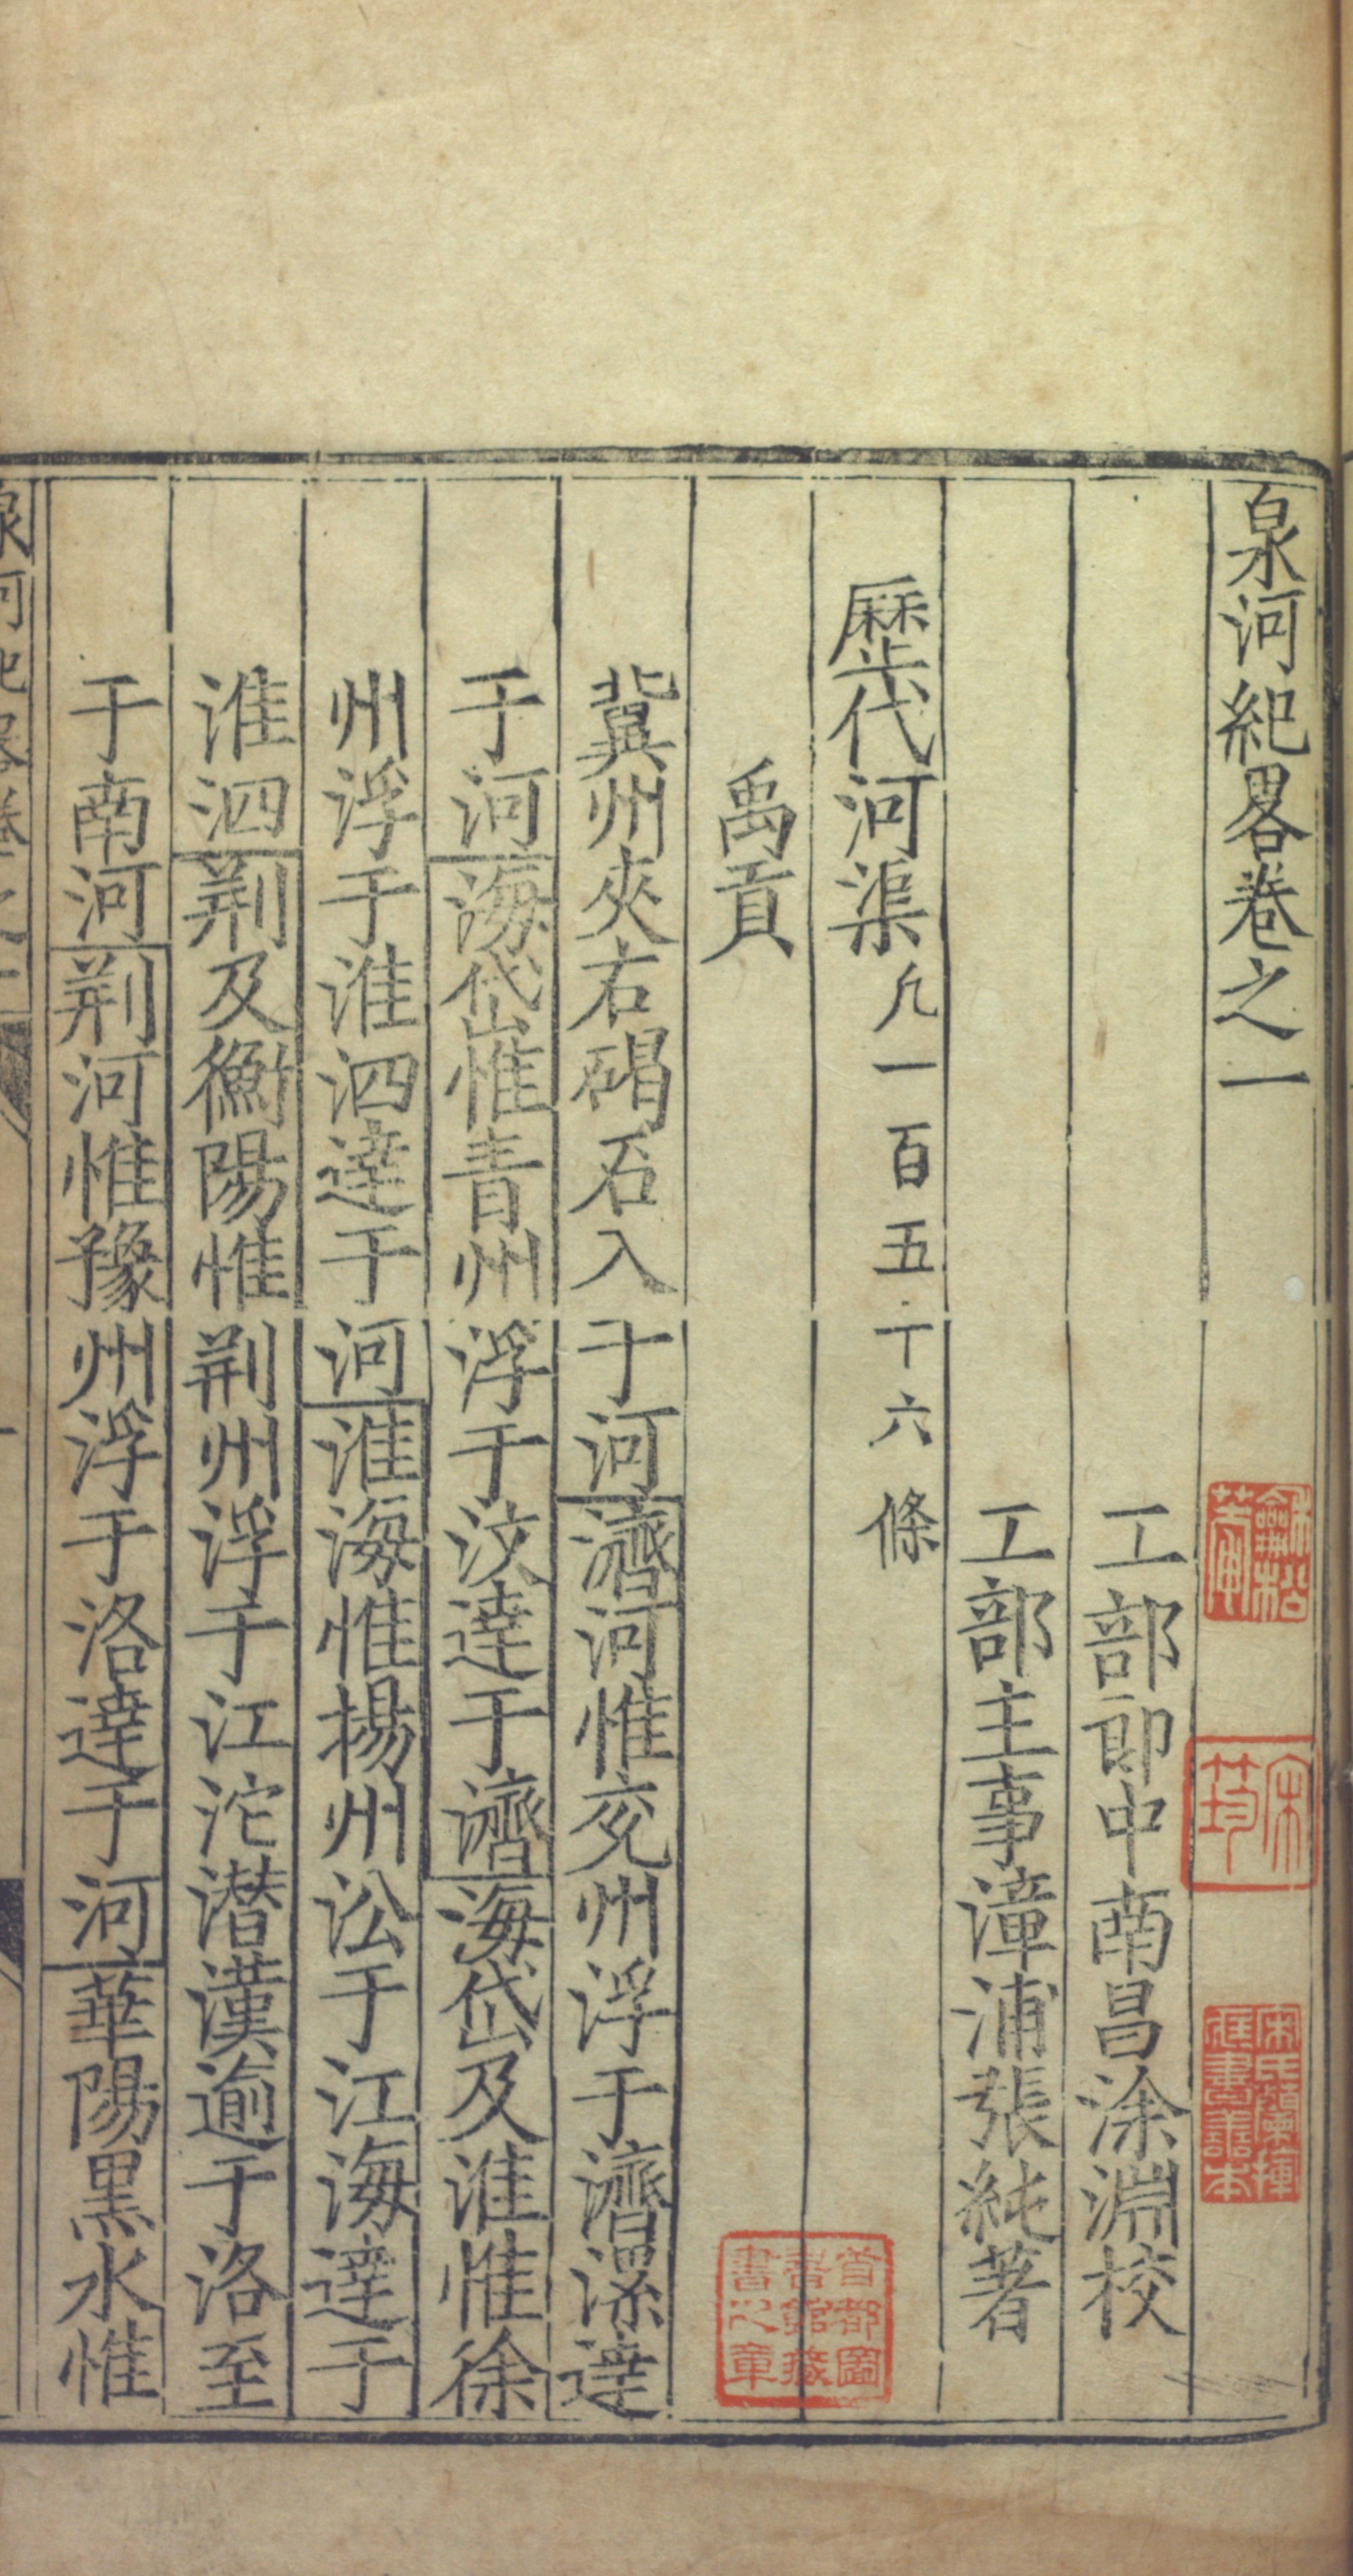 泉河紀畧卷之一
工部郎中南昌涂淵校
工部主事漳浦張純著
歷代河渠凢一百五十六條
禹貢
冀州夾右碣石入于河濟河惟兖州浮于濟漯達
于河海岱惟青州浮于汶達于濟海岱及淮惟徐
州浮于淮泗達于河淮海惟揚州㳂于江海達于
淮泗荆及衡陽惟荆州浮于江沱潜漢逾于洛至
于南河荆河惟豫州浮于洛達于河華陽黒水惟
泉河紀畧卷之一
宋筠
首都圖書館藏書之章